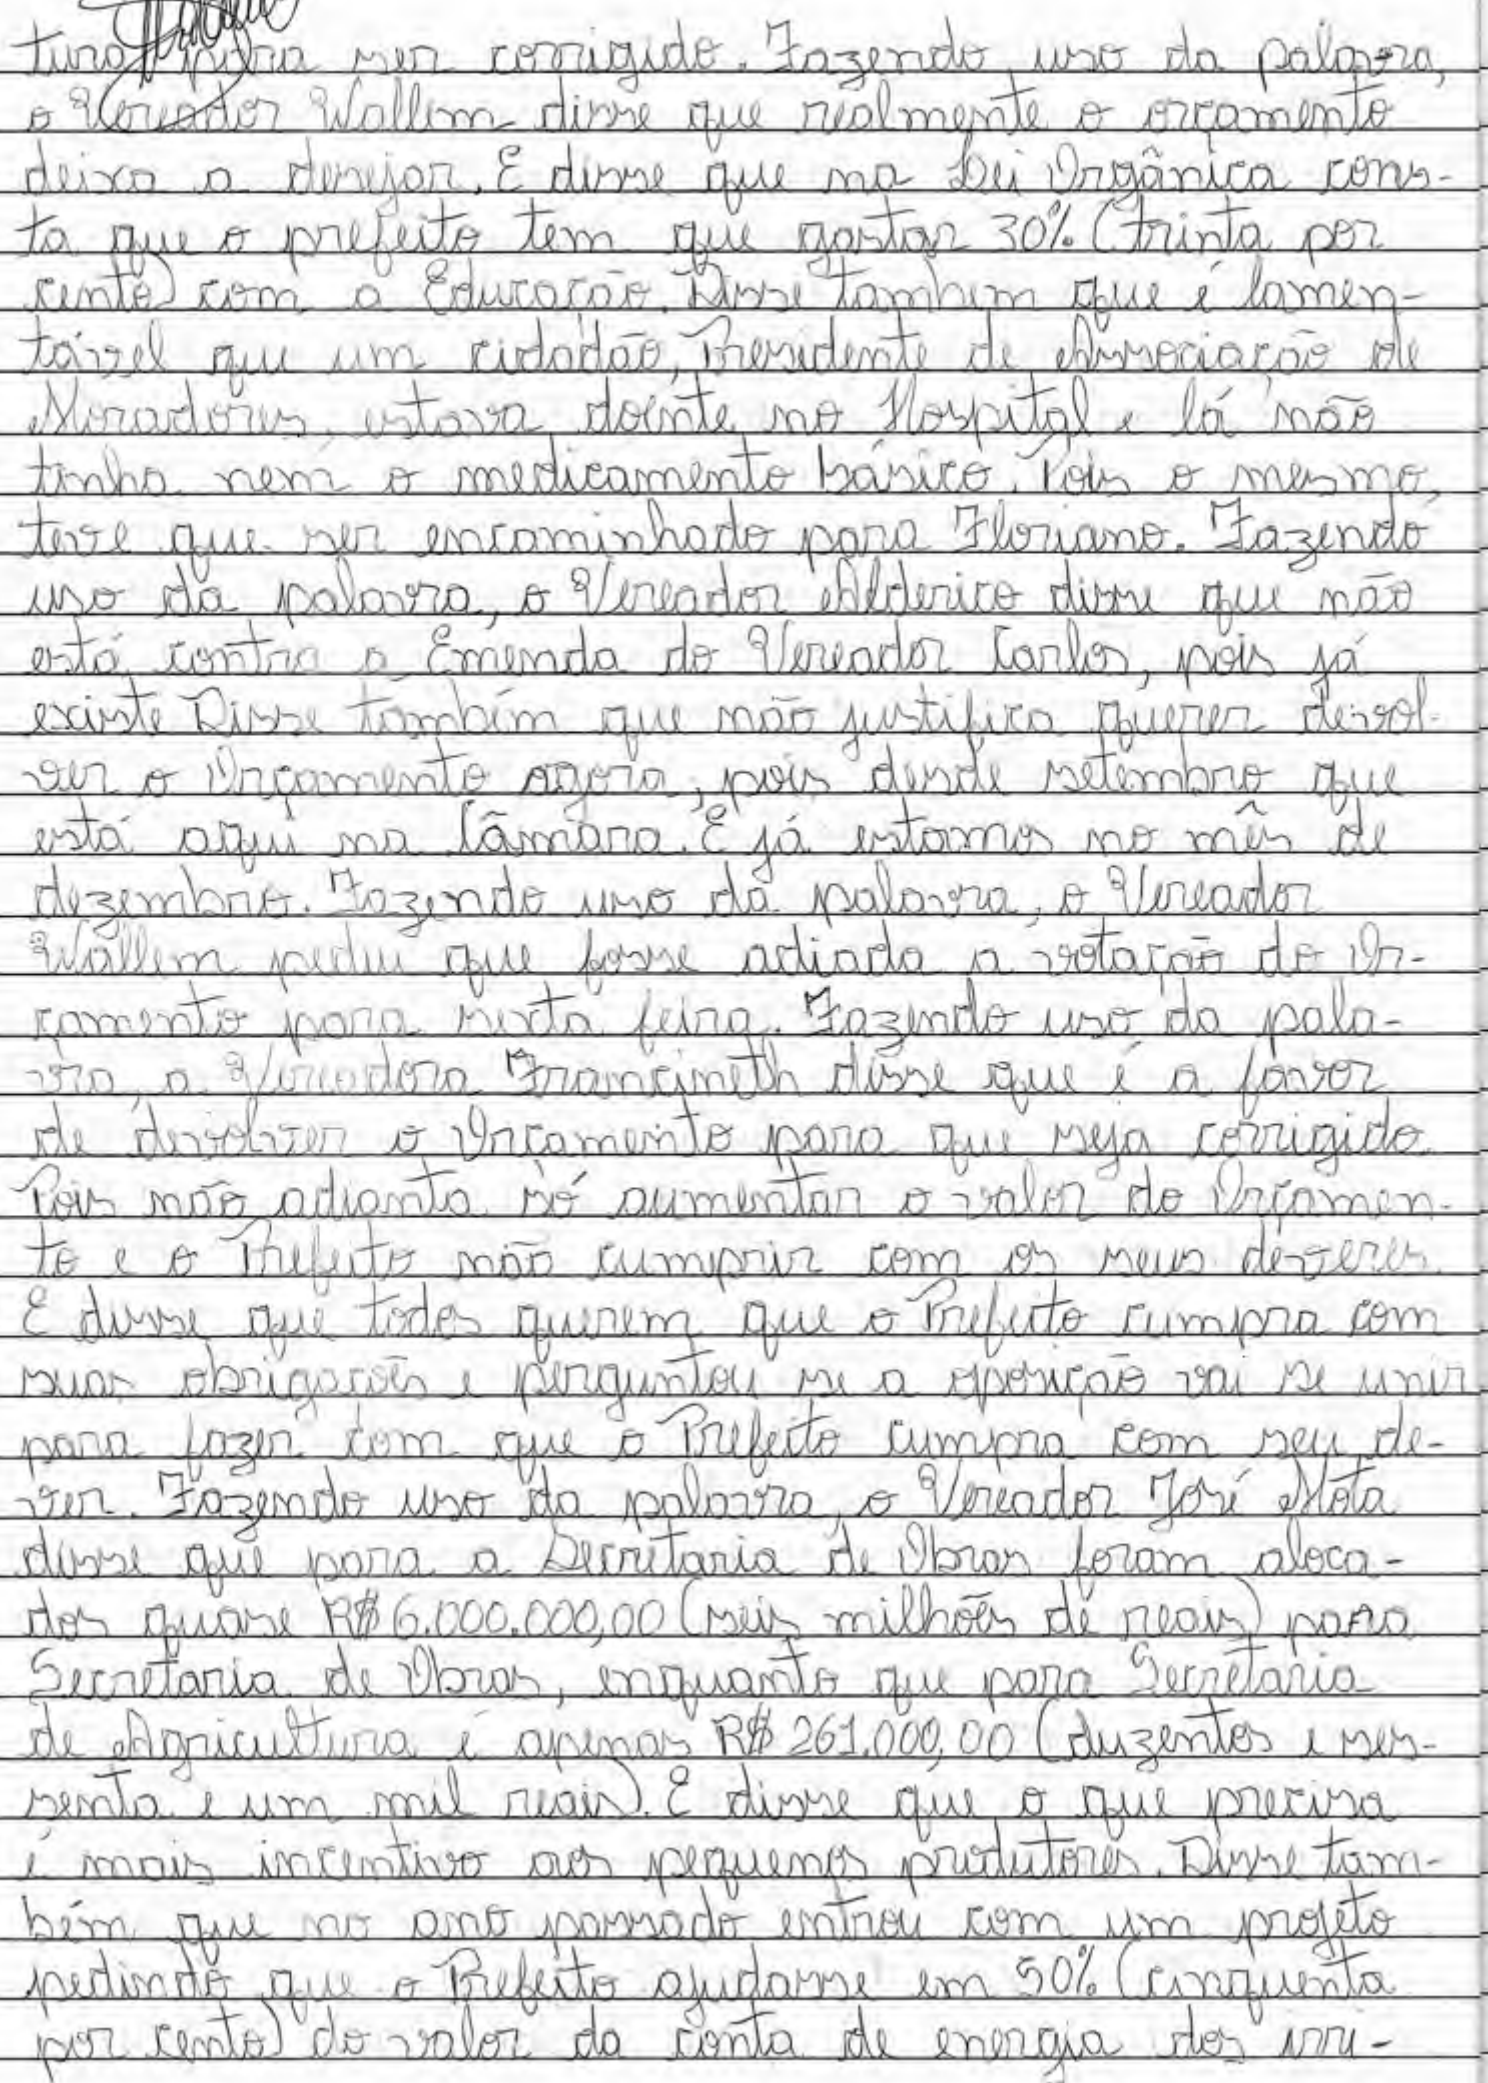 tura para ser corrigido. Fazendo uso da palavra,
o Vereador Wallem disse que realmente o orçamento
deixa a desejar. E disse que na Lei Orgânica cons-
ta que o prefeito tem que gastar 30% (trinta por
cento) com a Educação. Disse tambem que é lamen-
tável que um cidadão, Presidente de Associação de
Moradores, estava doente no Hospital e lá não
tinha nem o medicamento básico. Pois o mesmo,
teve que ser encaminhado para Floriano. Fazendo
uso da palavra, o Vereador Alderico disse que não
está contra a Emenda do Vereador Carlos, pois já
existe Disse também que não justifica querer devol-
ver o Orçamento agora, pois desde setembro que
está aqui na Câmara. E já estamos no mês de
dezembro. Fazendo uso da palavra, o Vereador
Wallem pediu que fosse adiada a votação do Or-
çamento para sexta feira. Fazendo uso da pala-
vra, a Vereadora Francineth disse que é a favor
de devolver o Orçamento para que seja corrigido.
Pois não adianta só aumentar o valor do Orçamen-
to e o Prefeito não cumprir com os seus deveres.
E disse que todos querem que o Prefeito cumpra com
suas obrigações e perguntou se a oposição vai se unir
para fazer com que o Prefeito cumpra com seu de-
ver. Fazendo uso da palavra, o Vereador José Mota
disse que para a Secretaria de Obras foram aloca-
dos quase R$ 6.000.000,00 (seis milhões de reais) para
Secretaria de Obras, enquanto que para Secretaria
de Agricultura é apenas R$ 261.000,00 (duzentos e ses-
senta e um mil reais). E disse que o que precisa
é mais incentivo aos pequenos produtores. Disse tam-
bém que no ano passado entrou com um projeto
pedindo que o Prefeito ajudasse em 50% (cinquenta
por cento) do valor da conta de energia dos irri-